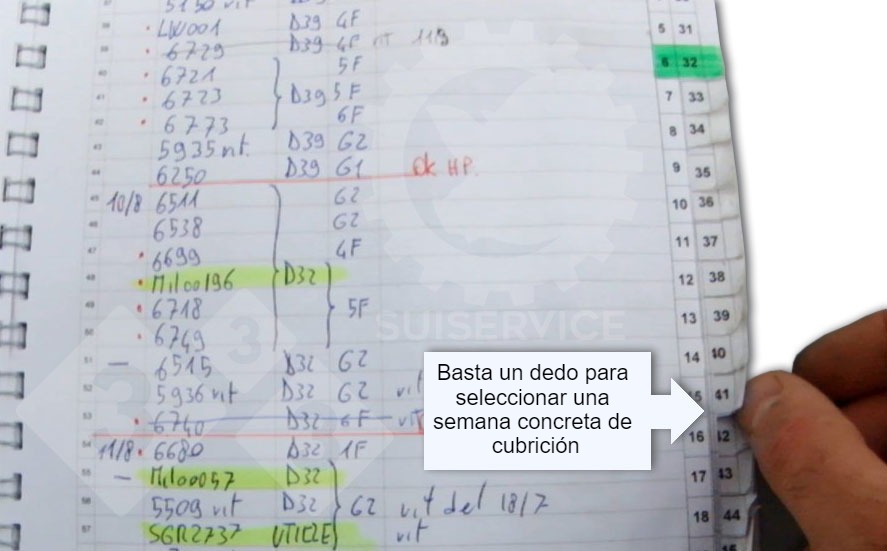 LW001 D39 4F
6729 D39 4F VIT 11/9
40 6721 5F
41 6723 D39 5F
42 6773 6F
5935 vit. D39 G2
44 6250 D39 G1 OK HP.
45 10/8 6511 G2
6538 G2
47 6699 4F
48 Miloo196 D32
49 6718 5F
50 6749
51 — 6515 D32 G2
52 5936 vit D32 G2 vit
53 6740 D32 6F
54 11/8 6680 1F D32
55 — Miloo057 D32
56 5509 vit D32 G2 vit del 18/7
57 SGR2737 UTICZE vit
5 31
6 32
7 33
8 34
9 35
10 36
11 37
12 38
13 39
14 40
41
16 42
17 43
18 44
Basta un dedo para
seleccionar una
semana concreta de
cubrición
SUISERVICE
333